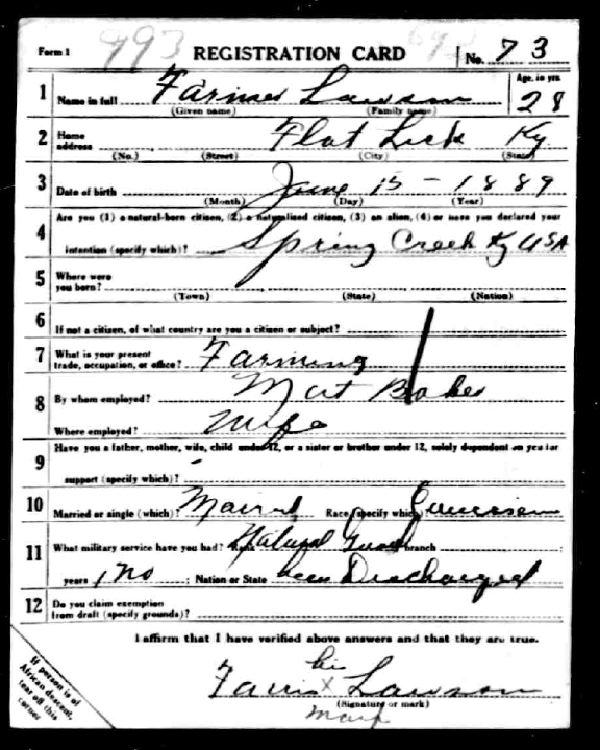 Form 1 993 REGISTRATION CARD No. 73
1 Name in full Farmer Lawson Age, in yrs. 28
(Given name) (Family name)
2 Home address Flat Lick Ky
(No.) (Street) (City) (State)
3 Date of birth June 15 - 1889
(Month) (Day) (Year)
4 Are you (1) a natural-born citizen, (2) a naturalized citizen, (3) an alien, (4) or have you declared your
intention (specify which)? Spring Creek Ky USA
5 Where were you born?
(Town) (State) (Nation)
6 If not a citizen, of what country are you a citizen or subject?
7 What is your present trade, occupation, or office? Farming
8 By whom employed? Mart Baker
Where employed? Wife
9 Have you a father, mother, wife, child under 12, or a sister or brother under 12, solely dependent on you for
support (specify which)? -
10 Married or single (which)? Married Race (specify which)
11 What military service have you had? Rank National Guard branch
years 1 no ; Nation or State been Discharged
12 Do you claim exemption from draft (specify grounds)?
I affirm that I have verified above answers and that they are true.
his
Farris x Lawson
(Signature or mark)
mark
If person is of
African descent,
tear off this
corner